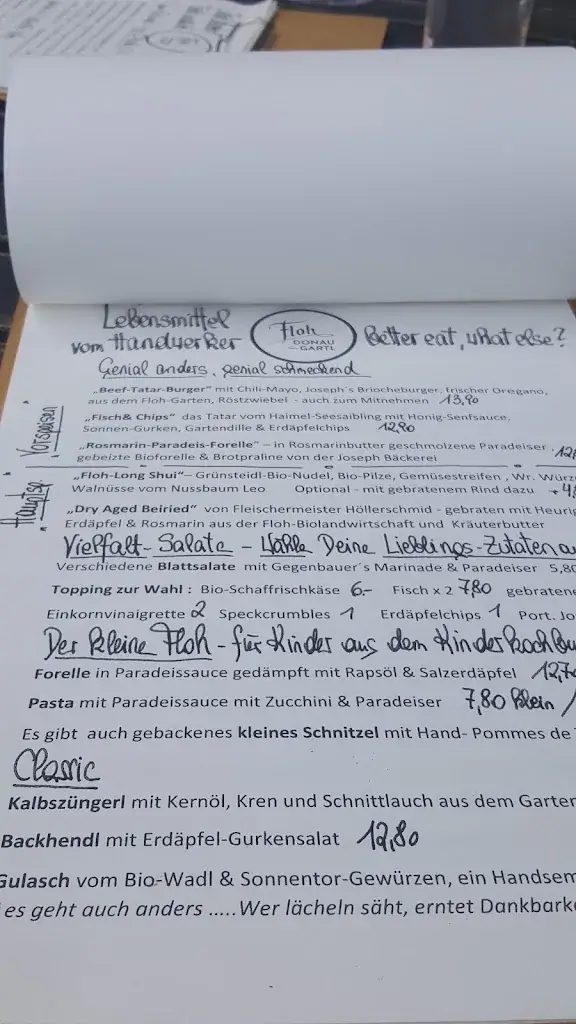 Lebensmittel
vom Handwerker
Floh
DONAU
GARTL
Better eat, what else?
Genial anders, genial schmeckend
Vorspeisen
„Beef-Tatar-Burger" mit Chili-Mayo, Joseph´s Briocheburger, frischer Oregano,
aus dem Floh-Garten, Röstzwiebel - auch zum Mitnehmen 13,90
„Fisch& Chips" das Tatar vom Haimel-Seesaibling mit Honig-Senfsauce,
Sonnen-Gurken, Gartendille & Erdäpfelchips 12,90
„Rosmarin-Paradeis-Forelle" – in Rosmarinbutter geschmolzene Paradeiser
gebeizte Bioforelle & Brotpraline von der Joseph Bäckerei
Hauptsp.
„Floh-Long Shui"– Grünsteidl-Bio-Nudel, Bio-Pilze, Gemüsestreifen , Wr. Würz
Walnüsse vom Nussbaum Leo Optional - mit gebratenem Rind dazu + 4
„Dry Aged Beiried" von Fleischermeister Höllerschmid - gebraten mit Heurig
Erdäpfel & Rosmarin aus der Floh-Biolandwirtschaft und Kräuterbutter
Vielfalt-Salate - Wähle Deine Lieblings-Zutaten
Verschiedene Blattsalate mit Gegenbauer´s Marinade & Paradeiser 5,80
Topping zur Wahl : Bio-Schaffrischkäse 6.- Fisch x 2 7,80 gebratene
Einkornvinaigrette 2 Speckcrumbles 1 Erdäpfelchips 1 Port. Jo
Der kleine Floh - für Kinder aus dem Kinderkochbu
Forelle in Paradeissauce gedämpft mit Rapsöl & Salzerdäpfel 12,70
Pasta mit Paradeissauce mit Zucchini & Paradeiser 7,80 klein /
Es gibt auch gebackenes kleines Schnitzel mit Hand- Pommes de
Classic
Kalbszüngerl mit Kernöl, Kren und Schnittlauch aus dem Garten
Backhendl mit Erdäpfel-Gurkensalat 12,80
Gulasch vom Bio-Wadl & Sonnentor-Gewürzen, ein Handsem
es geht auch anders .....Wer lächeln säht, erntet Dankbarke